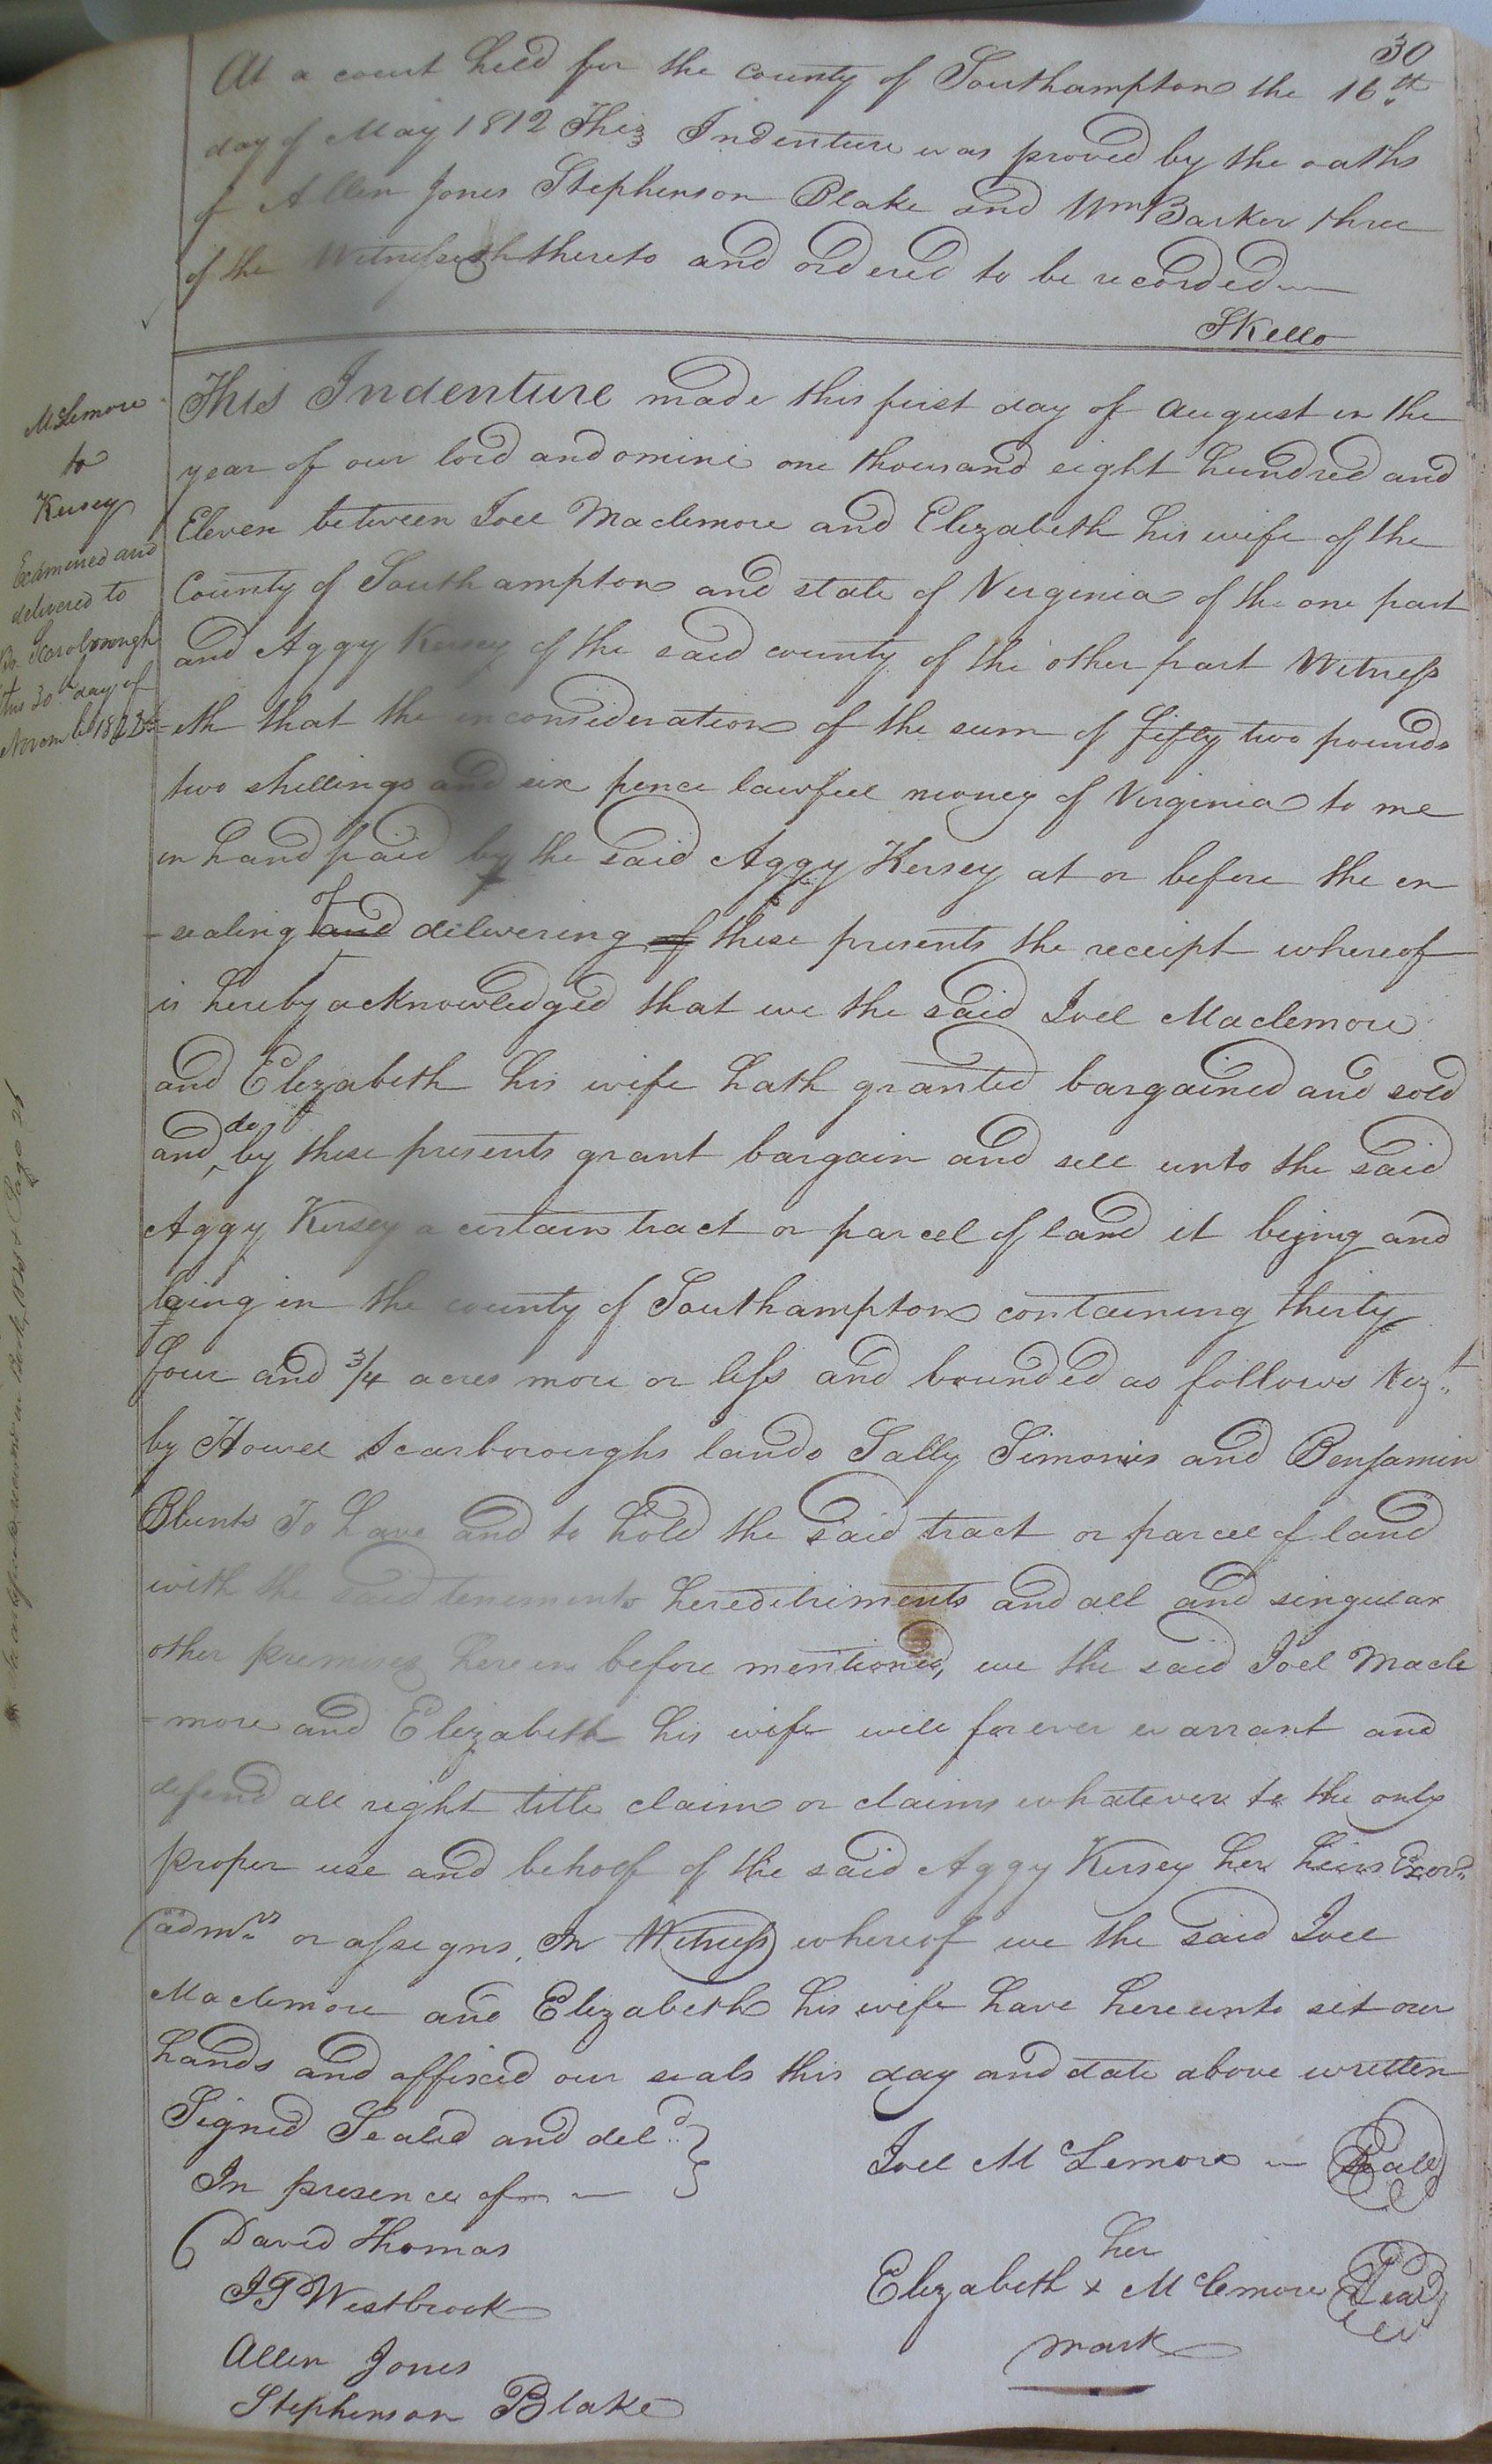 30
At a court held for the county of Southampton the 16th
day of May 1812 This Indenture was proved by the oaths
of Allen Jones Stephenson Blake and Wm Barker three
of the Witnesseth thereto and ordered to be recorded
SKello
McLemore
to
Kersey
Examined and
delivered to
Scarborough
this 30th day of
Novem
This Indenture made this first day of August in the
year of our lord and omini one thousand eight hundred and
Eleven between Joel Maclemore and Elizabeth his wife of the
County of Southampton and state of Virginia of the one part
and Aggy Kersey of the said county of the other part Witness
-eth that the in consideration of the sum of fifty two pounds
two shillings and six pence lawfull money of Virginia to me
in hand paid by the said Aggy Kersey at or before the en
-sealing of and delivering of these presents the receipt whereof
is hereby acknowledged that we the said Joel Maclemore
and Elizabeth his wife hath granted bargained and sold
and do by these presents grant bargain and sell unto the said
Aggy Kersey a certain tract or parcel of land it being and
laing in the county of Southampton containing thirty
four and 3/4 acres more or less and bounded as follows Vizt
by Howel Scarboroughs lands Sally Simonis and Benjamin
Blunts To have and to hold the said tract or parcel of land
with the said tenements hereditiments and all and singular
other premises herein before mentioned, we the said Joel Macle
=more and Elizabeth his wife will forever warrant and
defend all right title claim or claims whatever to the only
proper use and behoof of the said Aggy Kersey her heirs Exors
admrs or assigns, In Witness whereof we the said Joel
Maclemore and Elizabeth his wife have hereunto set our
hands and affixed our seals this day and date above written
Signed Sealed and deld
In presence of
Joel McLemore Seal
David Thomas
her
JT Westbrook
Elizabeth x Mclemore Seal
mark
Allen Jones
Stephenson Blake